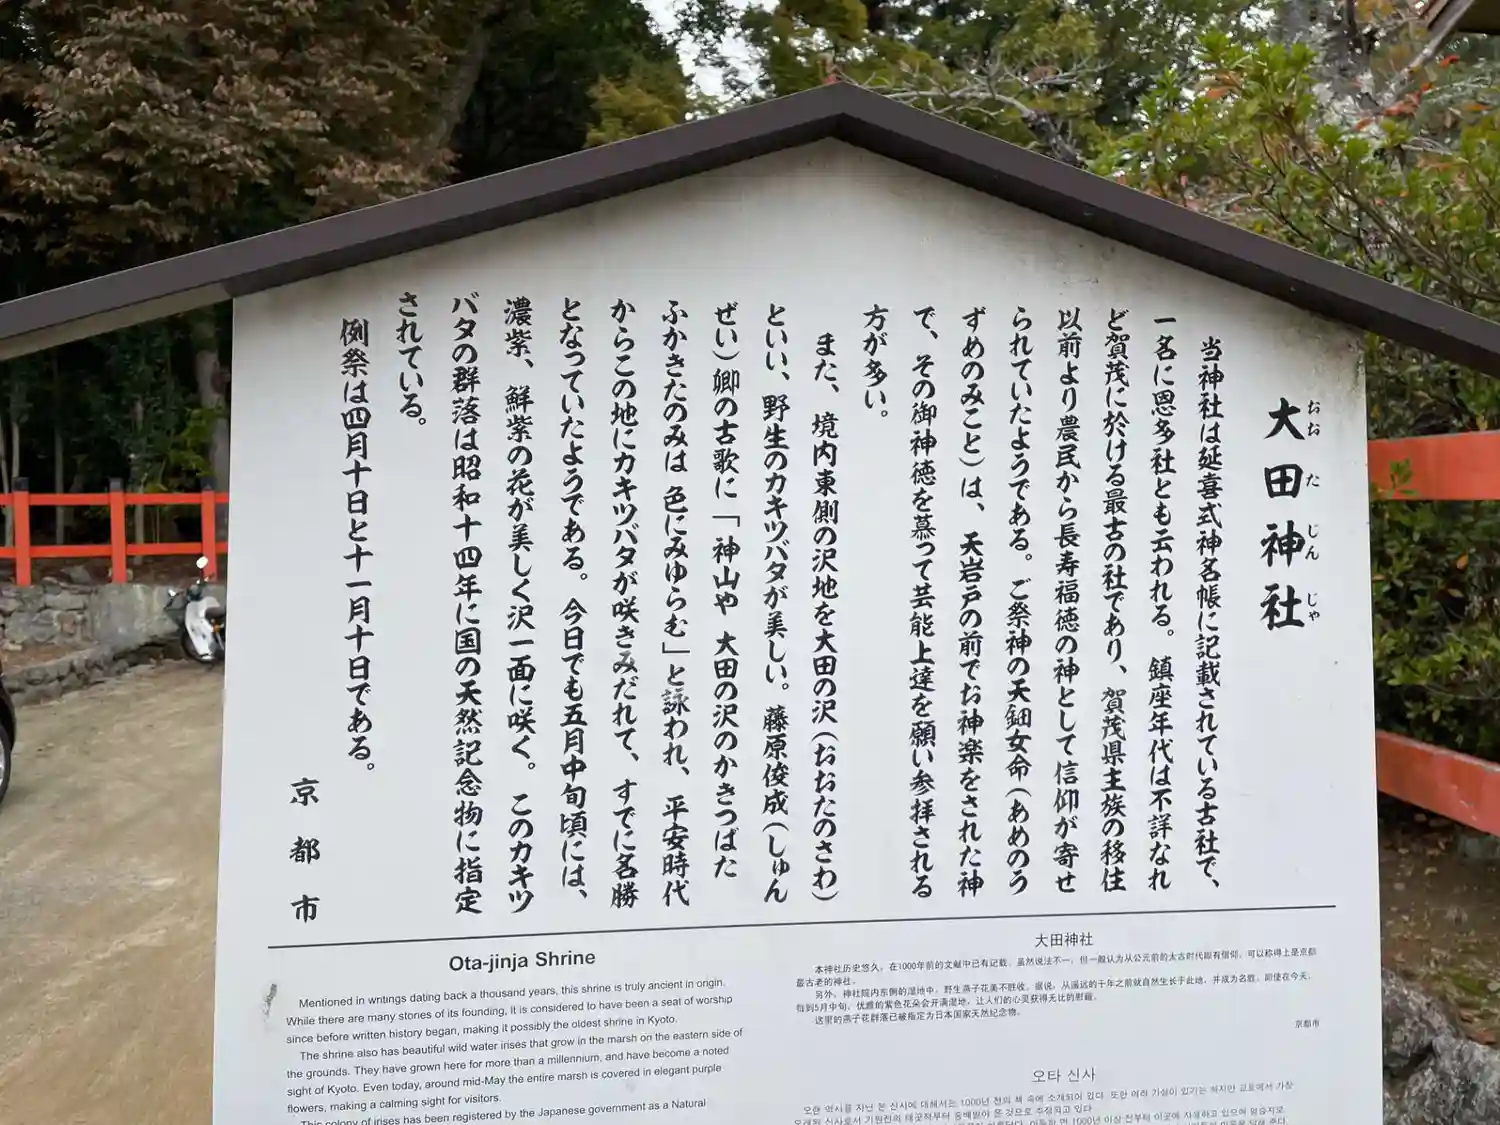 大田神社
おおたじんじゃ
当神社は延喜式神名帳に記載されている古社で、
一名に恩多社とも云われる。鎮座年代は不詳なれ
ど賀茂に於ける最古の社であり、賀茂県主族の移住
以前より農民から長寿福徳の神として信仰が寄せ
られていたようである。ご祭神の天鈿女命(あめのう
ずめのみこと)は、天岩戸の前でお神楽をされた神
で、その御神徳を慕って芸能上達を願い参拝される
方が多い。
また、境内東側の沢地を大田の沢(おおたのさわ)
といい、野生のカキツバタが美しい。藤原俊成(しゅん
ぜい)卿の古歌に「神山や 大田の沢のかきつばた
ふかきたのみは 色にみゆらむ」と詠われ、平安時代
からこの地にカキツバタが咲きみだれて、すでに名勝
となっていたようである。今日でも五月中旬頃には、
濃紫、鮮紫の花が美しく沢一面に咲く。このカキツ
バタの群落は昭和十四年に国の天然記念物に指定
されている。
例祭は四月十日と十一月十日である。
京都市
Ota-jinja Shrine
Mentioned in writings dating back a thousand years, this shrine is truly ancient in origin.
While there are many stories of its founding, it is considered to have been a seat of worship
since before written history began, making it possibly the oldest shrine in Kyoto.
The shrine also has beautiful wild water irises that grow in the marsh on the eastern side of
the grounds. They have grown here for more than a millennium, and have become a noted
sight of Kyoto. Even today, around mid-May the entire marsh is covered in elegant purple
flowers, making a calming sight for visitors.
This colony of irises has been registered by the Japanese government as a Natural
大田神社
本神社历史悠久，在1000年前的文献中已有记载。虽然说法不一，但一般认为从公元前的太古时代即有信仰，可以称得上是京都
最古老的神社。
另外，神社院内东侧的湿地中，野生燕子花美不胜收。据说，从遥远的千年之前就自然生长于此地，并成为名胜。即使在今天，
每到5月中旬，优雅的紫色花朵会开满湿地，让人们的心灵获得无比的慰藉。
这里的燕子花群落已被指定为日本国家天然纪念物。
京都市
오타 신사
오랜 역사를 지닌 본 신사에 대해서는 1000년 전의 책 속에 소개되어 있다. 또한 여러 가설이 있기는 하지만 교토에서 가장